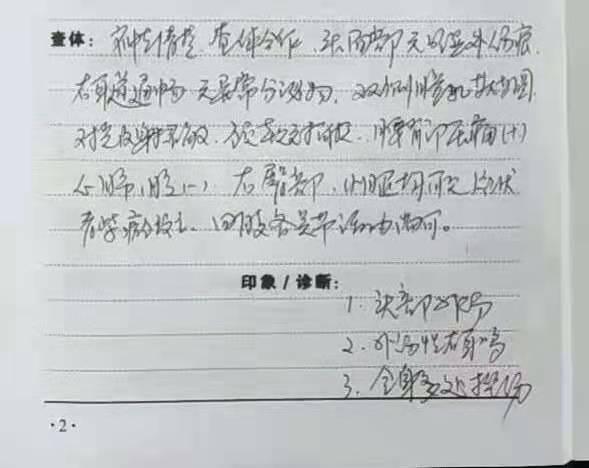 查体：神志清楚，查体合作，头面部无明显外伤痕，
右耳道通畅，无异常分泌物，双侧瞳孔等大等圆，
对光反射灵敏，颈软无抵抗，腰背部压痛(+)
心肺腹(-)，右臀部、
青紫瘀。四肢各关节活动尚可。
印象/诊断：
1. 头部外伤
2. 外伤性右耳鸣
3. 全身多处挫伤
·2·